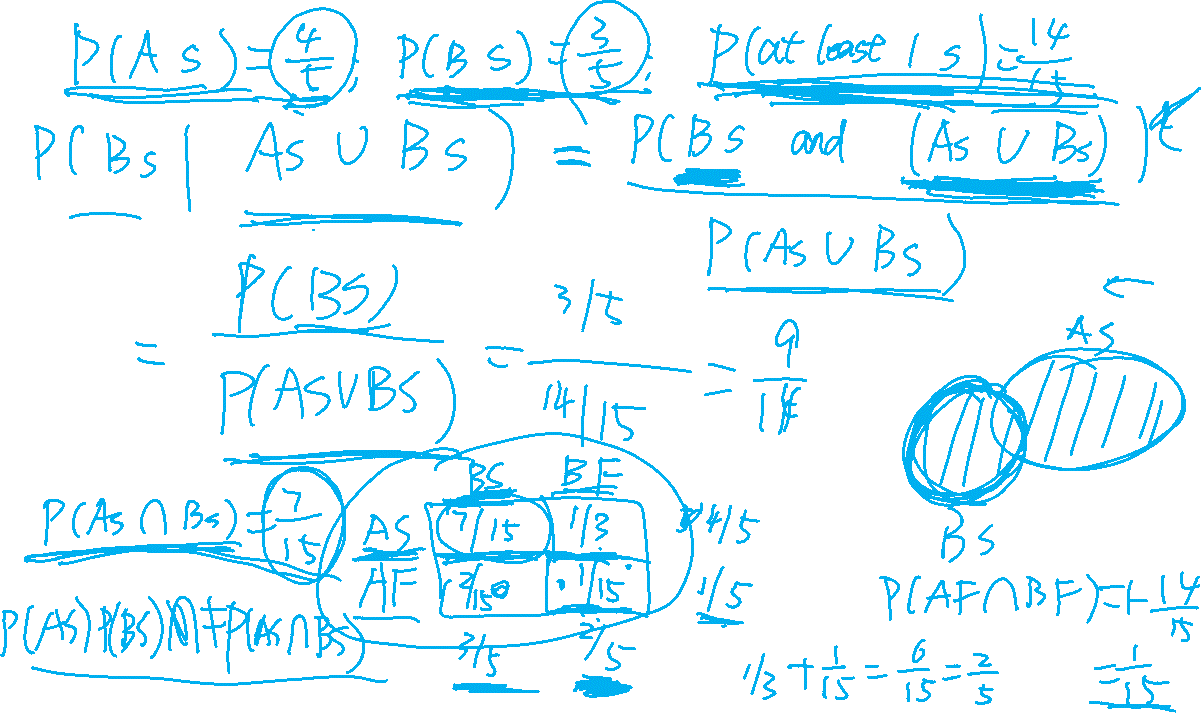 P(As) = 4/5; P(Bs) = 3/5; P(at least 1 s) = 14/15
P(Bs | As ∪ Bs) = P(Bs and (As ∪ Bs)) / P(As ∪ Bs)
= P(BS) / P(AS∪BS) = 3/5 / 14/15 = 9/14
AS
BS
P(As ∩ Bs) = 7/15
BS BF
AS 7/15 1/3 4/5
AF 2/15 1/15 1/5
3/5 2/5
P(AS)P(BS) ≠ P(AS∩BS)
P(AF∩BF) = 1-14/15
= 1/15
1/3 + 1/15 = 6/15 = 2/5